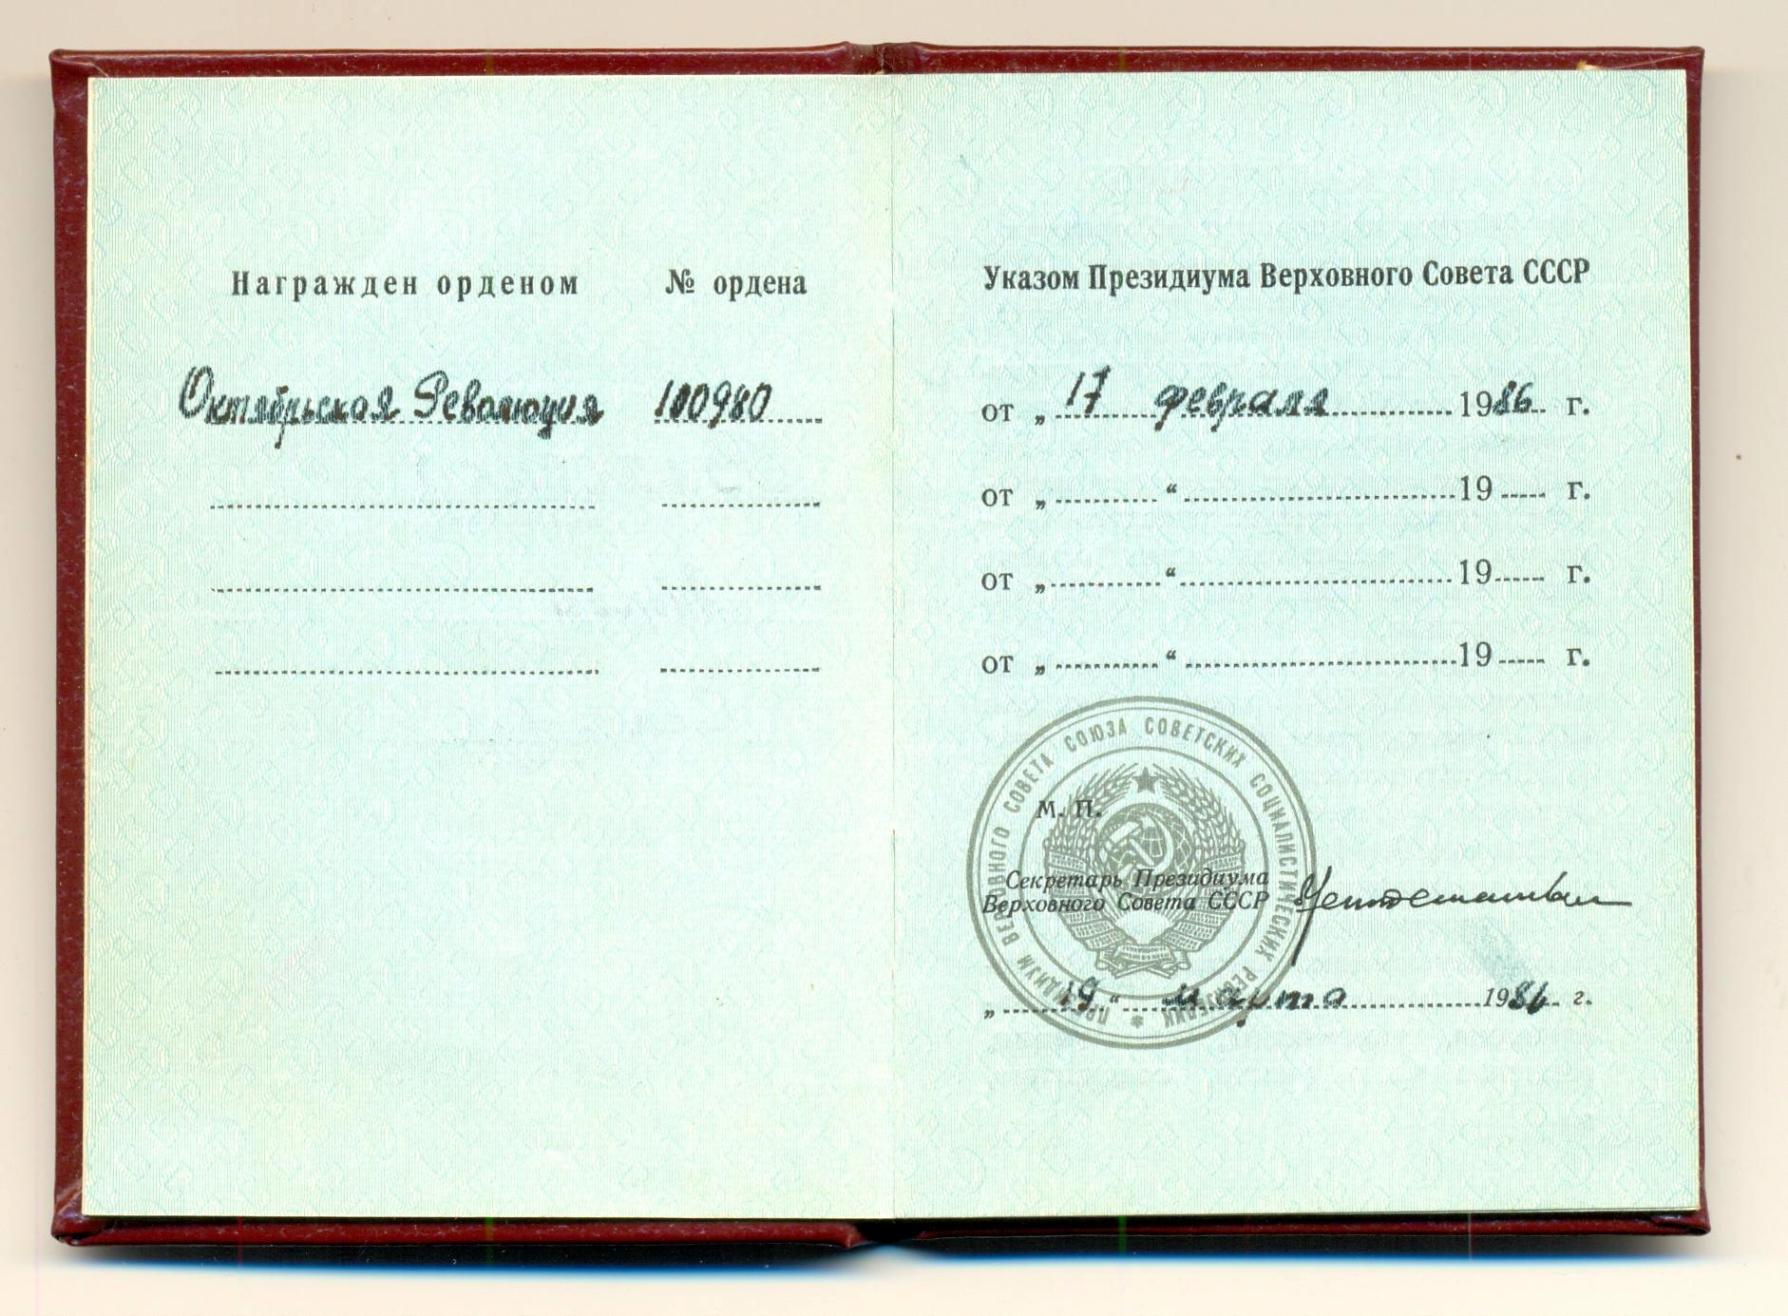 Награжден орденом № ордена
Октябрьская Революция 100980
Указом Президиума Верховного Совета СССР
от „ 17 февраля 1986 г.
от „ “ 19 г.
от „ “ 19 г.
от „ “ 19 г.
ПРЕЗИДИУМ ВЕРХОВНОГО СОВЕТА СОЮЗА СОВЕТСКИХ СОЦИАЛИСТИЧЕСКИХ РЕСПУБЛИК
М. П.
Секретарь Президиума
Верховного Совета СССР
„ 19 “ марта 1986 г.